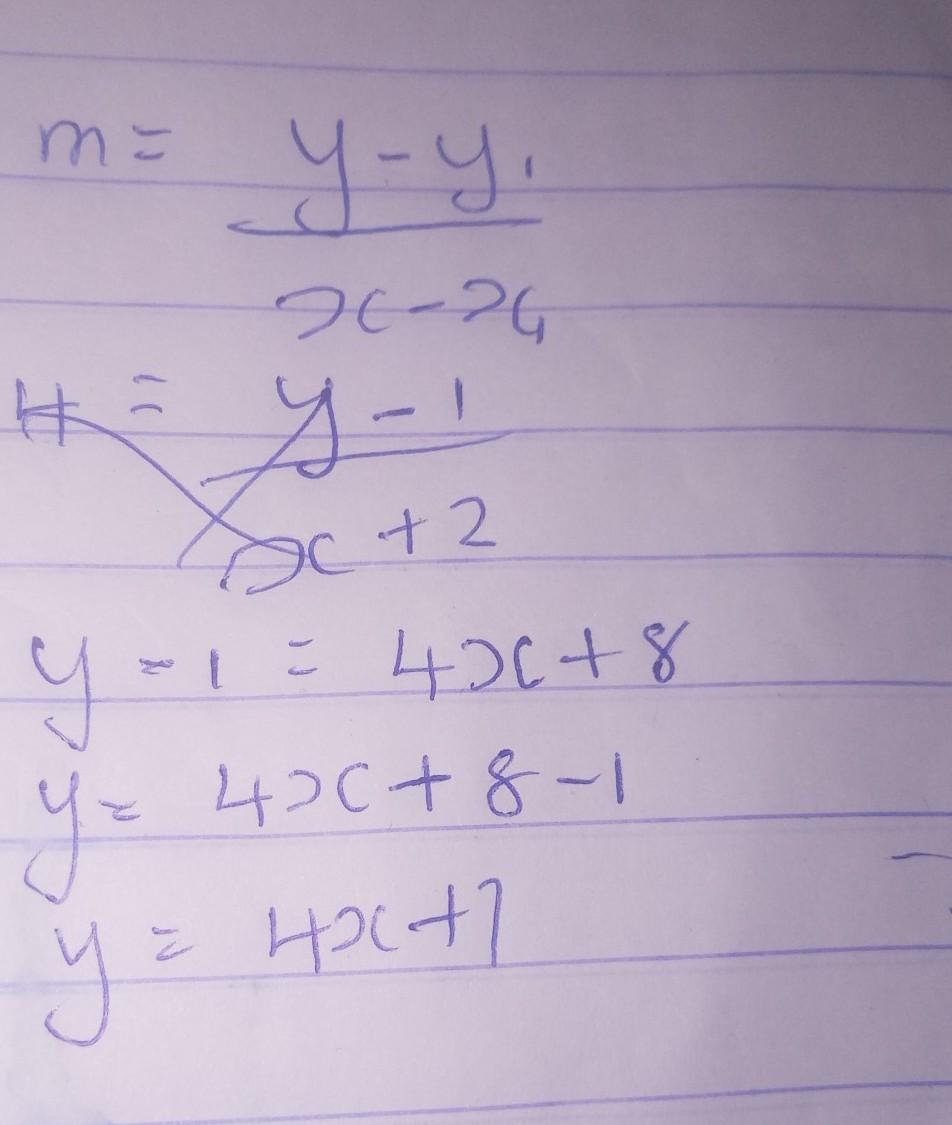 m = y - y₁
x - x₁
4 = y - 1
x + 2
y - 1 = 4x + 8
y = 4x + 8 - 1
y = 4x + 7